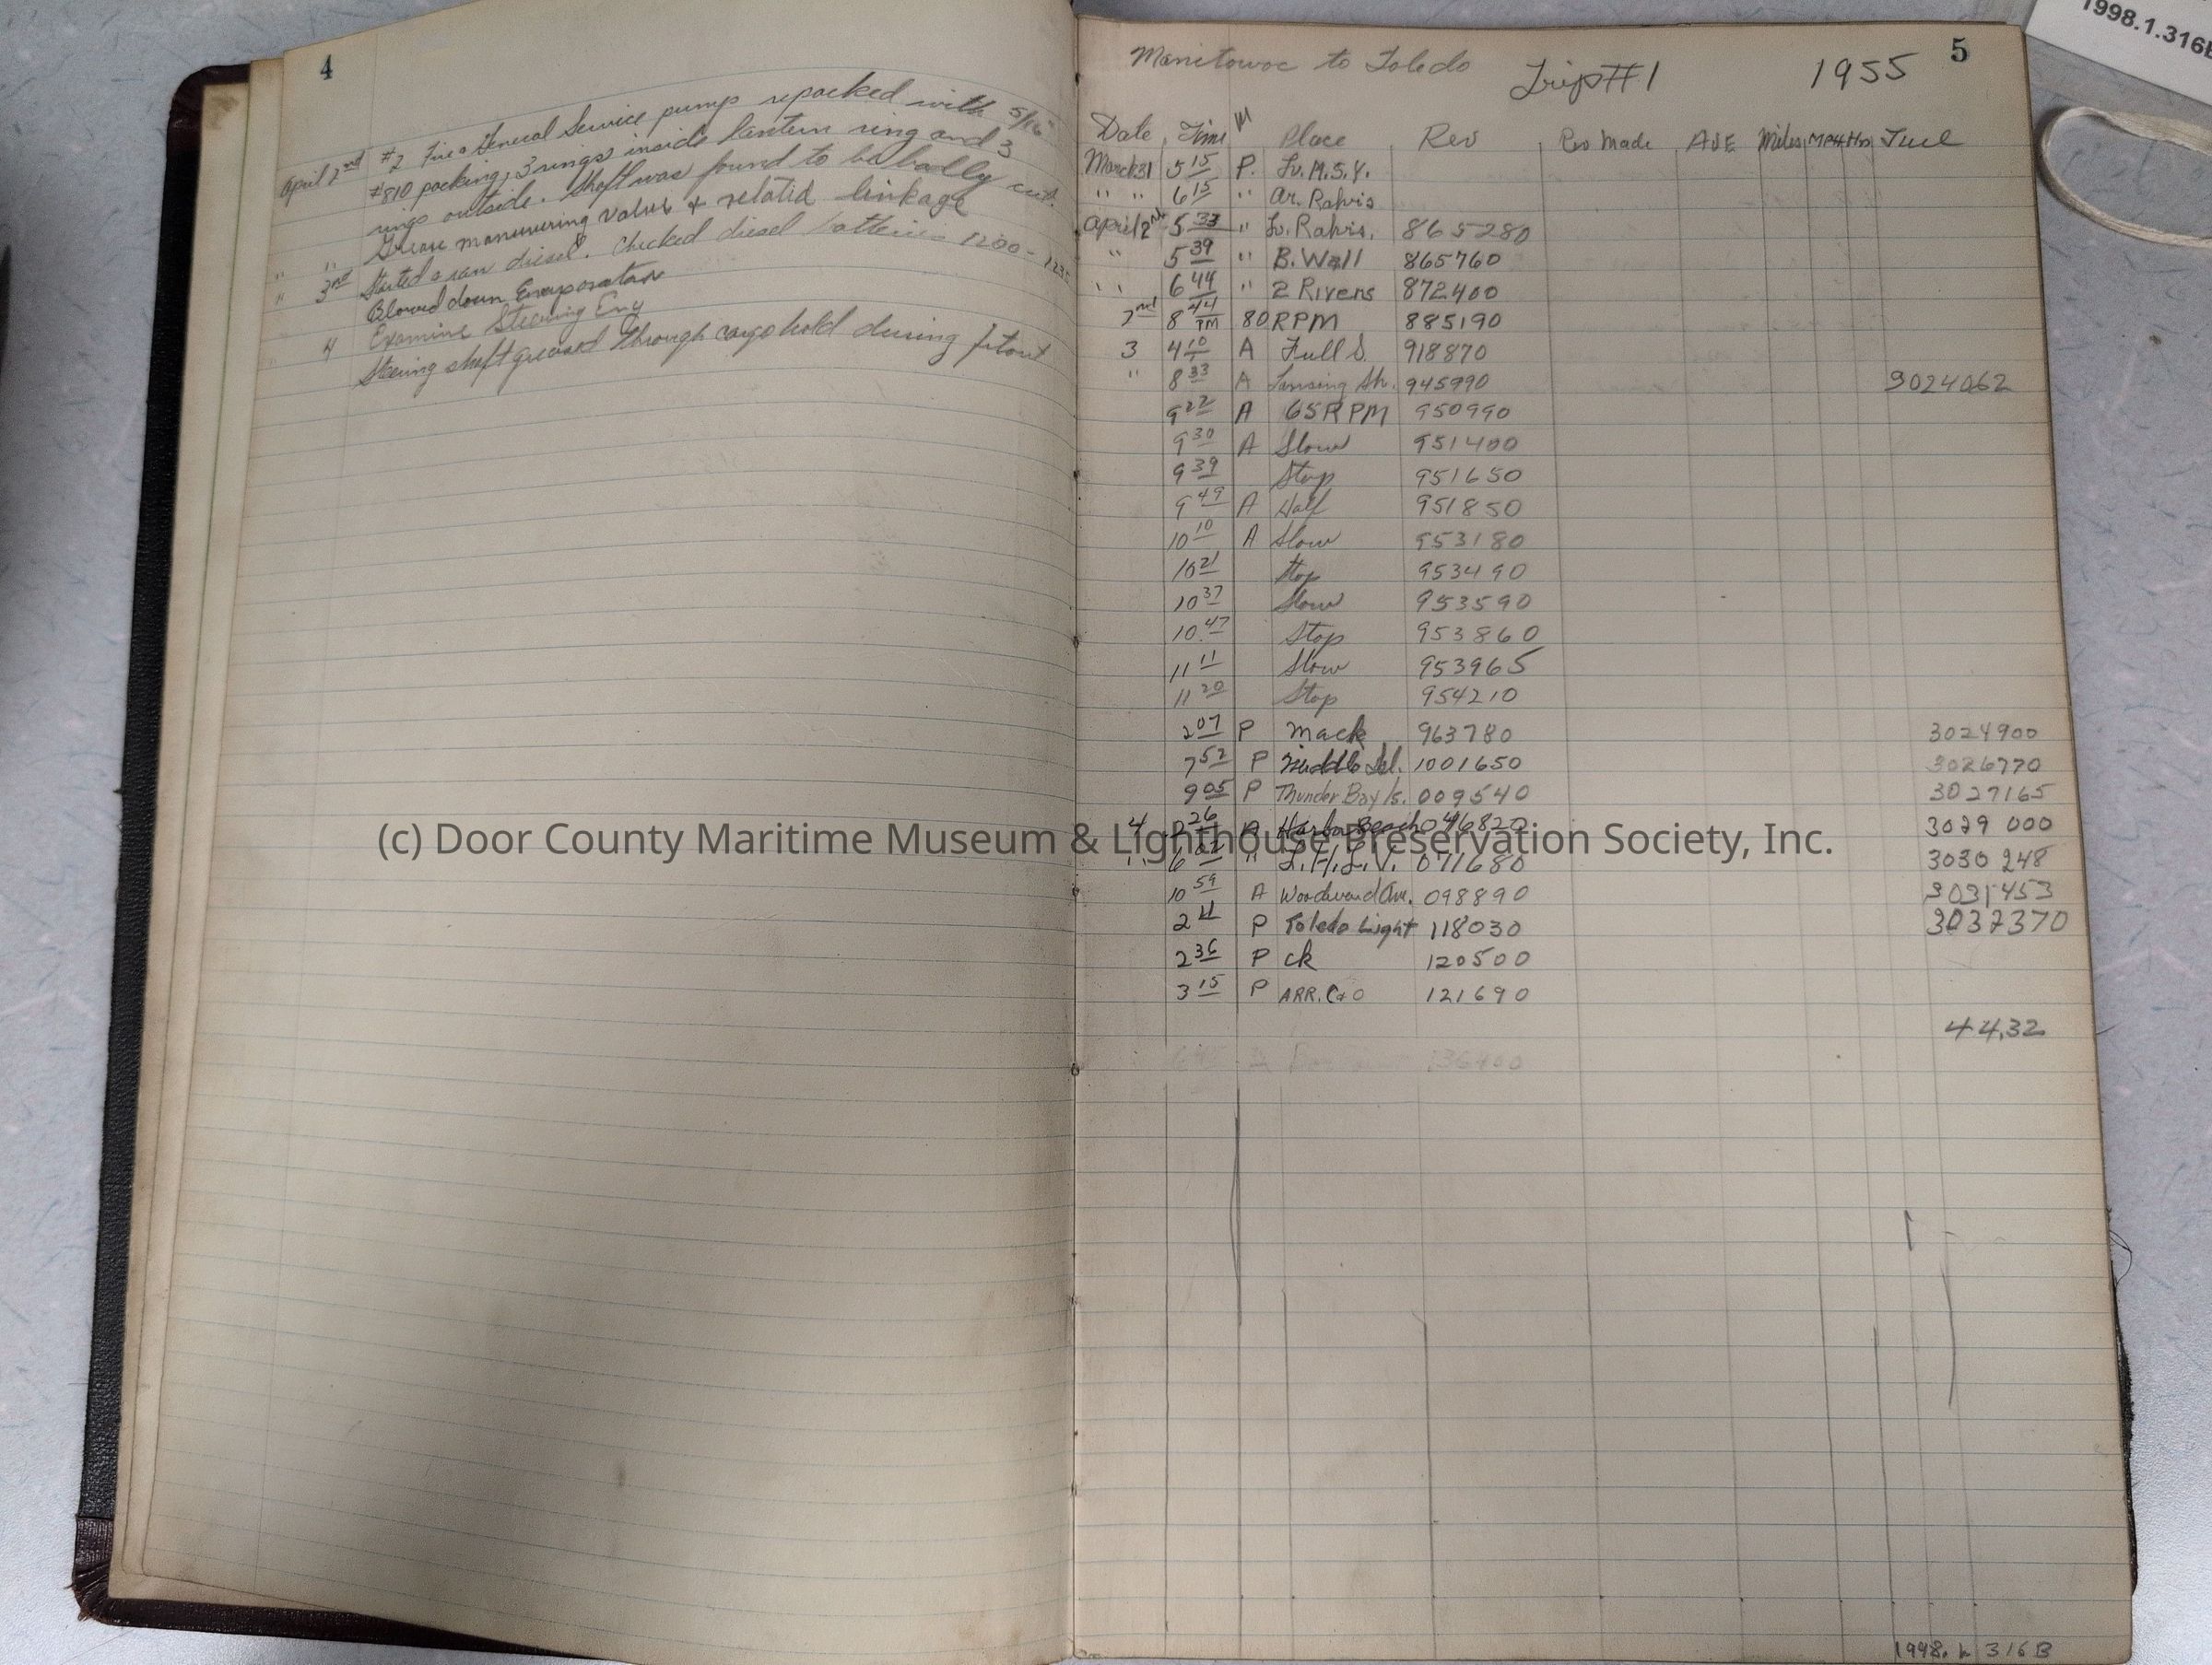 4
April 2nd #2 Fire & General Service pump repacked with 5/16"
#810 packing, 3 rings inside lantern ring and 3
rings outside. Shaft was found to be badly cut.
" " Grease maneuvering valve & related linkage
" 3rd Started & ran diesel. Checked diesel batteries 1200-
Blowed down Evaporator
4 Examine Steering Eng
Steering shaft greased through cargo hold during fitout
1998.1.316B
5
Manitowoc to Toledo Trip #1 1955
Date Time M Place Rev Rev Made AVE Miles MPH Hrs Fuel
March 31 5 15 P. Lv. M.S.Y.
" " 6 15 " Ar. Rahrs
April 2nd 5 33 " Lv. Rahrs. 865280
" 5 39 " B. Wall 865760
" " 6 44 " 2 Rivers 872400
2nd 8 44 PM 80 RPM 885190
3 4 10 A Full S. 918870
" 8 33 A Lansing Sh. 945990 3024062
9 22 A 65 RPM 950990
9 30 A Slow 951400
9 39 Stop 951650
9 49 A Half 951850
10 10 A Slow 953180
10 21 Stop 953490
10 37 Slow 953590
10 47 Stop 953860
11 11 Slow 953965
11 20 Stop 954210
2 07 P Mack 963780 3024900
7 52 P Middle Isl. 1001650 3026770
9 05 P Thunder Bay Is. 009540 3027165
4 2 26 A Harbor Beach 046820 3029000
(c) Door County Maritime Museum & Lighthouse Preservation Society, Inc.
" 6 02 " L.H.L.V. 071680 3030248
10 59 A Woodward Ave. 098890 3031453
2 11 P Toledo Light 118030 3032370
2 36 P ck 120500
3 15 P ARR. C&O 121690
44.32
136400
1998.1.316B